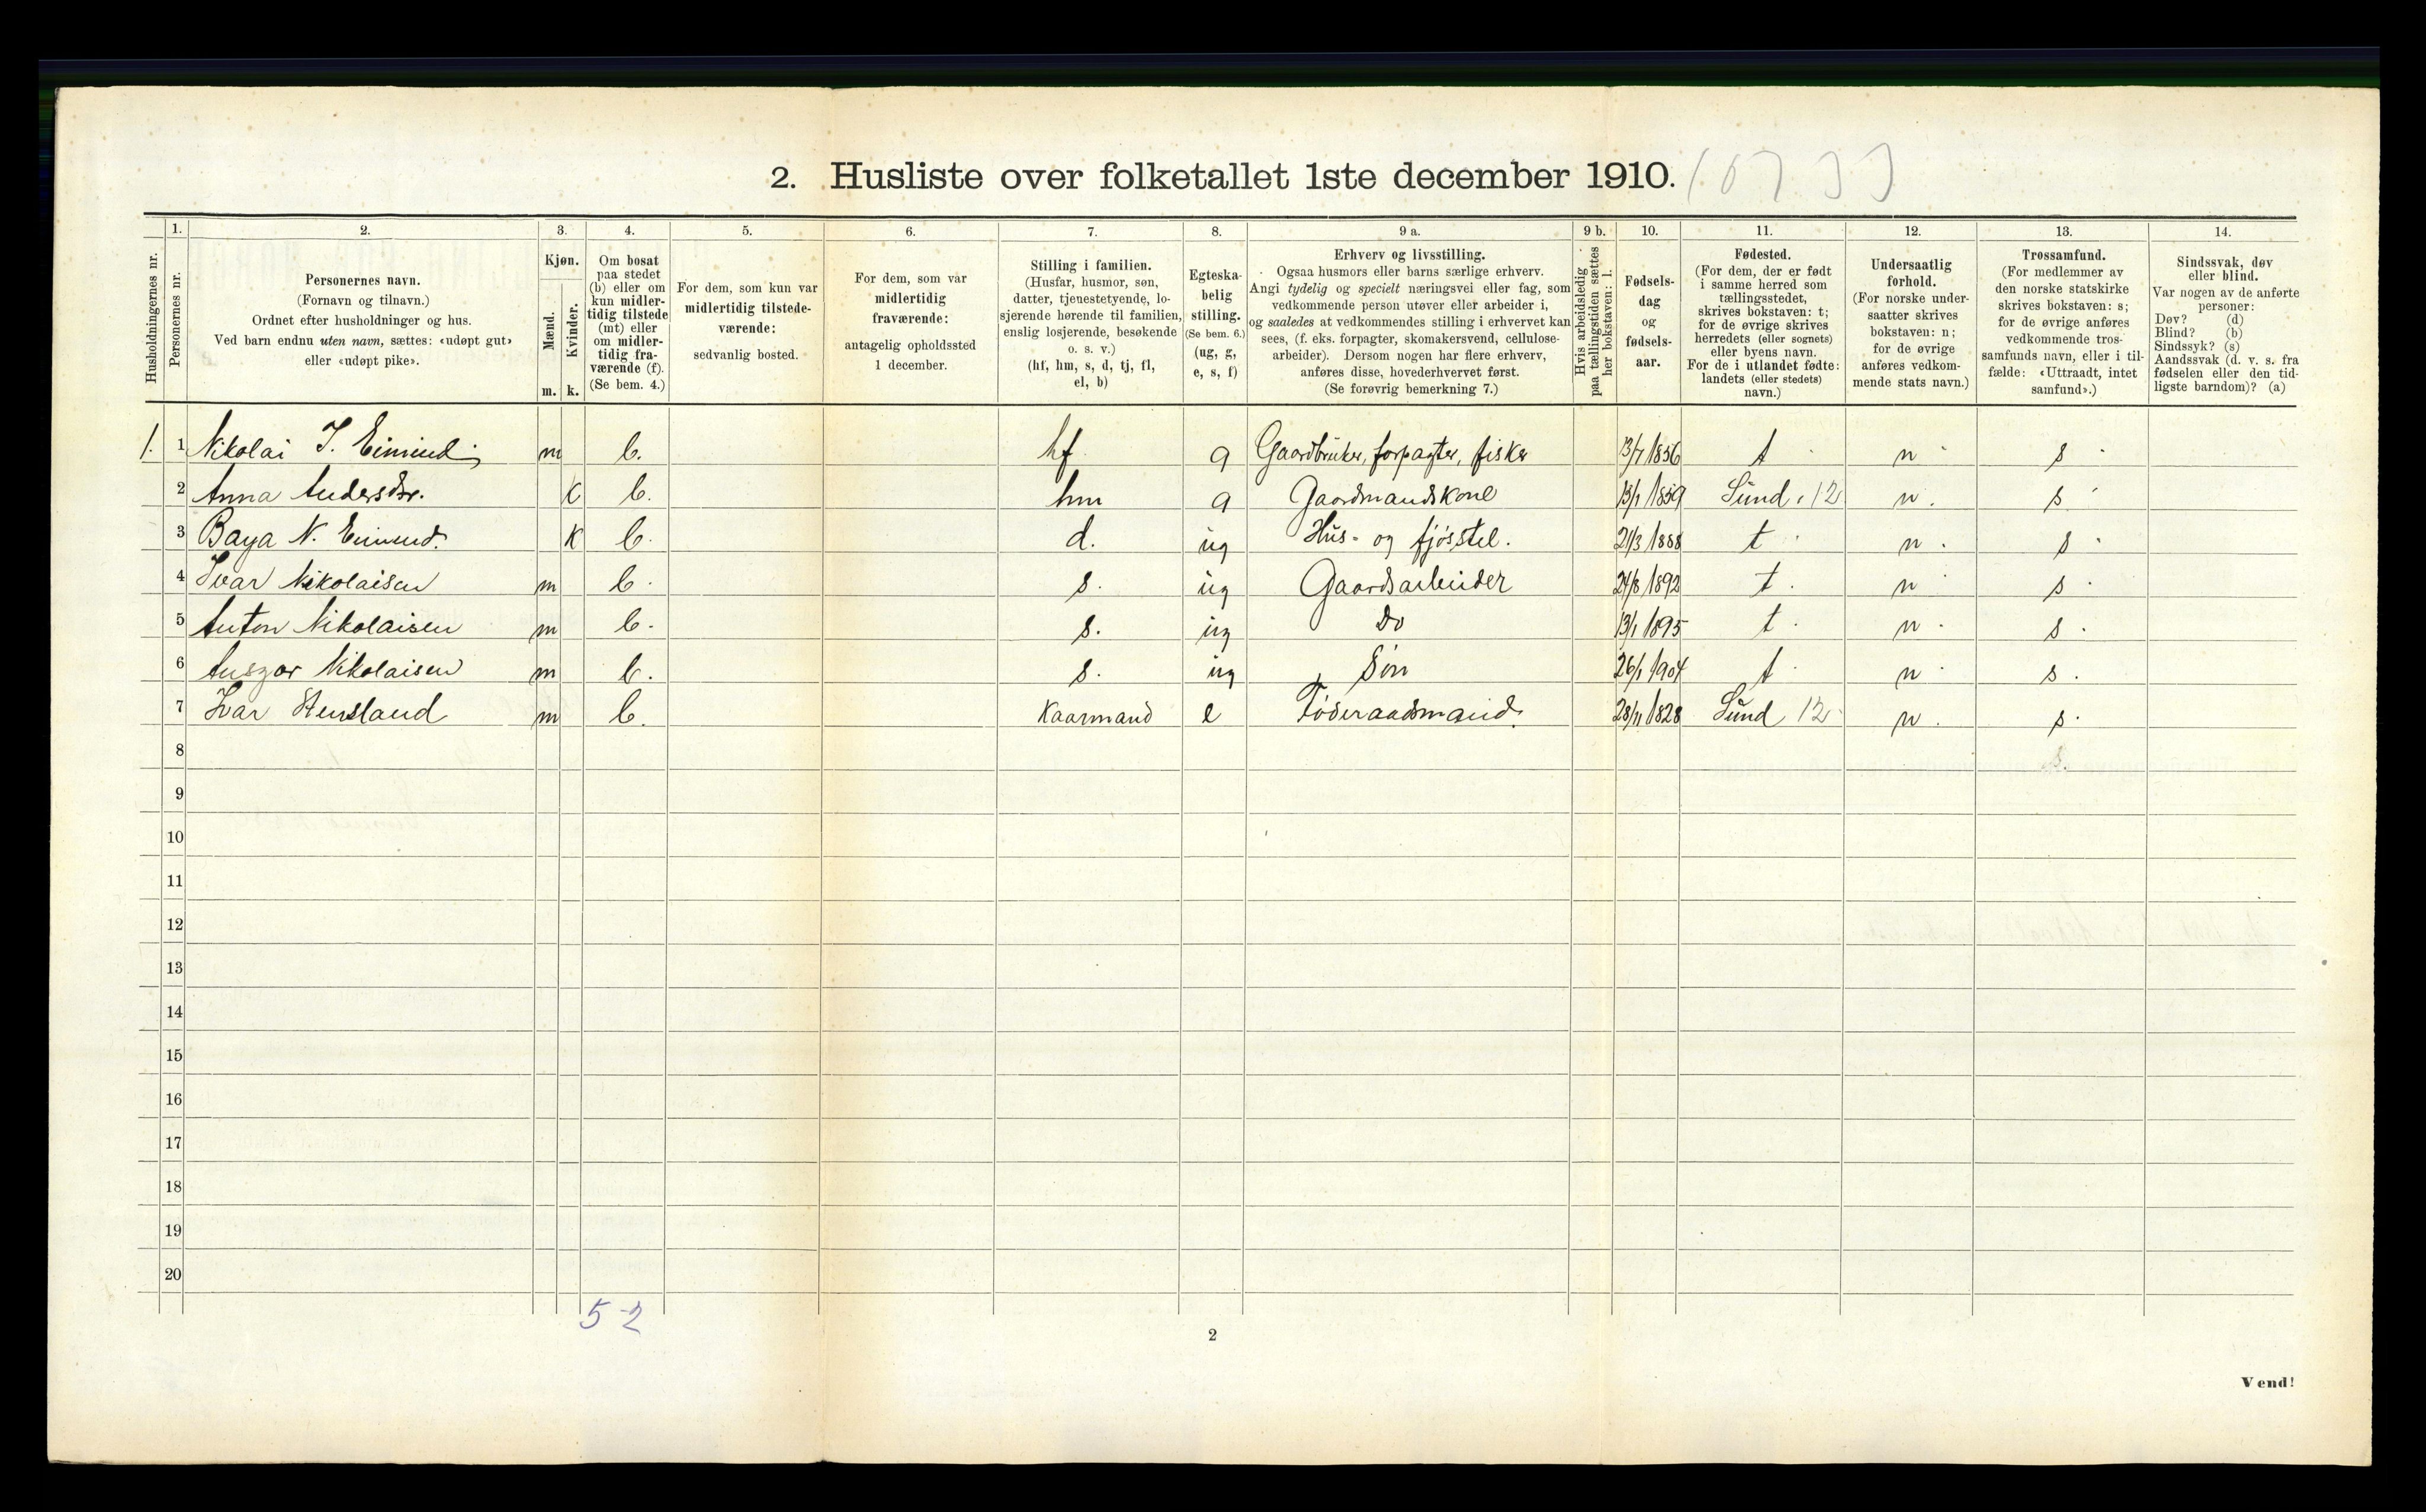 2. Husliste over folketallet 1ste december 1910.
Husholdningernes nr.
1.
Personernes nr.
2.
Personernes navn.
(Fornavn og tilnavn.)
Ordnet efter husholdninger og hus.
Ved barn endnu uten navn, sættes: «udøpt gut»
eller «udøpt pike».
3.
Kjøn.
Mænd.
m.
Kvinder.
k.
4.
Om bosat
paa stedet
(b) eller om
kun midler-
tidig tilstede
(mt) eller
om midler-
tidig fra-
værende (f).
(Se bem. 4.)
5.
For dem, som kun var
midlertidig tilstede-
værende:
sedvanlig bosted.
6.
For dem, som var
midlertidig
fraværende:
antagelig opholdssted
1 december.
7.
Stilling i familien.
(Husfar, husmor, søn,
datter, tjenestetyende, lo-
sjerende hørende til familien,
enslig losjerende, besøkende
o. s. v.)
(hf, hm, s, d, tj, fl,
el, b)
8.
Egteska-
belig
stilling.
(Se bem. 6.)
(ug, g,
e, s, f)
9 a.
Erhverv og livsstilling.
Ogsaa husmors eller barns særlige erhverv.
Angi tydelig og specielt næringsvei eller fag, som
vedkommende person utøver eller arbeider i,
og saaledes at vedkommendes stilling i erhvervet kan
sees, (f. eks. forpagter, skomakersvend, cellulose-
arbeider). Dersom nogen har flere erhverv,
anføres disse, hovederhvervet først.
(Se forøvrig bemerkning 7.)
9 b.
Hvis arbeidsledig
paa tællingstiden sættes
her bokstaven: l.
10.
Fødsels-
dag
og
fødsels-
aar.
11.
Fødested.
(For dem, der er født
i samme herred som
tællingsstedet,
skrives bokstaven: t;
for de øvrige skrives
herredets (eller sognets)
eller byens navn.
For de i utlandet fødte:
landets (eller stedets)
navn.)
12.
Undersaatlig
forhold.
(For norske under-
saatter skrives
bokstaven: n;
for de øvrige
anføres vedkom-
mende stats navn.)
13.
Trossamfund.
(For medlemmer av
den norske statskirke
skrives bokstaven: s;
for de øvrige anføres
vedkommende tros-
samfunds navn, eller i til-
fælde: «Uttraadt, intet
samfund».)
14.
Sindssvak, døv
eller blind.
Var nogen av de anførte
personer:
Døv? (d)
Blind? (b)
Sindssyk? (s)
Aandssvak (d. v. s. fra
fødselen eller den tid-
ligste barndom)? (a)
1. 1 Nikolai I. Eimind m b. hf g Gaardbruker, forpagter, fisker 13/7 1856 t n s
2 Anna Andersdtr. K b. hm g Gaardmandskone 13/1 1859 Sund 12 n. s
3 Baya N. Eimind. K b. d. ug Hus- og fjøsstel. 21/3 1888 t n. s
4 Ivar Nikolaisen m b. s. ug Gaardsarbeider 24/8 1892 t. n s
5 Anton Nikolaisen m b. s. ug Do 13/1 1895 t n s.
6 Ansgar Nikolaisen m b. s. ug Søn 26/1 1904 t n s.
7 Ivar Stensland m b. Kaarmand e Føderaadsmand. 28/11 1828 Sund 12 n. s.
8
9
10
11
12
13
14
15
16
17
18
19
20
5-2
2
Vend!